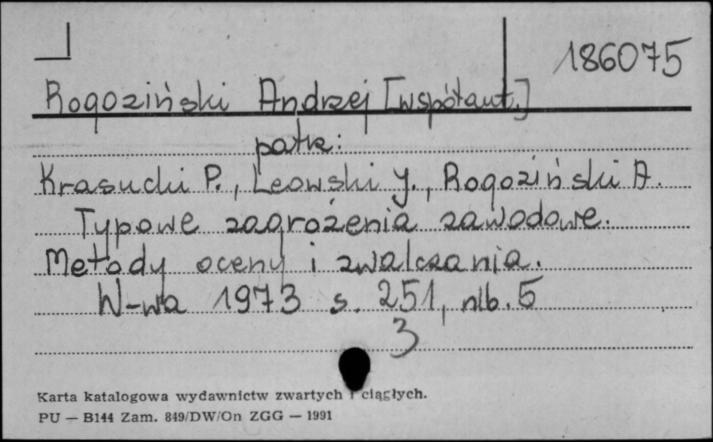 186075
Rogoziński Andrzej [współaut.]
patrz:
Krasucki P., Leowski J., Rogoziński A.
Typowe zagrożenia zawodowe.
Metody oceny i zwalczania.
W-wa 1973 s. 251, nlb. 5
3
Karta katalogowa wydawnictw zwartych i ciągłych.
PU — B144 Zam. 849/DW/On ZGG — 1991